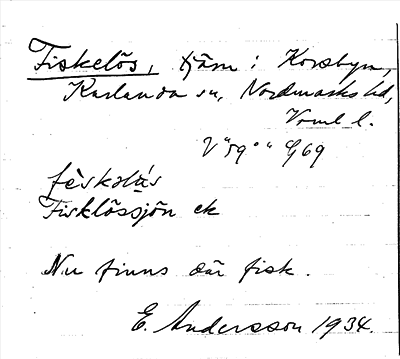 Fiskelös, tjärn i Korsbyn,
Karlanda sn, Nordmarks hd,
Vrml l.
V "59°" G69
fèskələ̀s
Fisklössjön ek
Nu finns där fisk.
E. Andersson 1934.